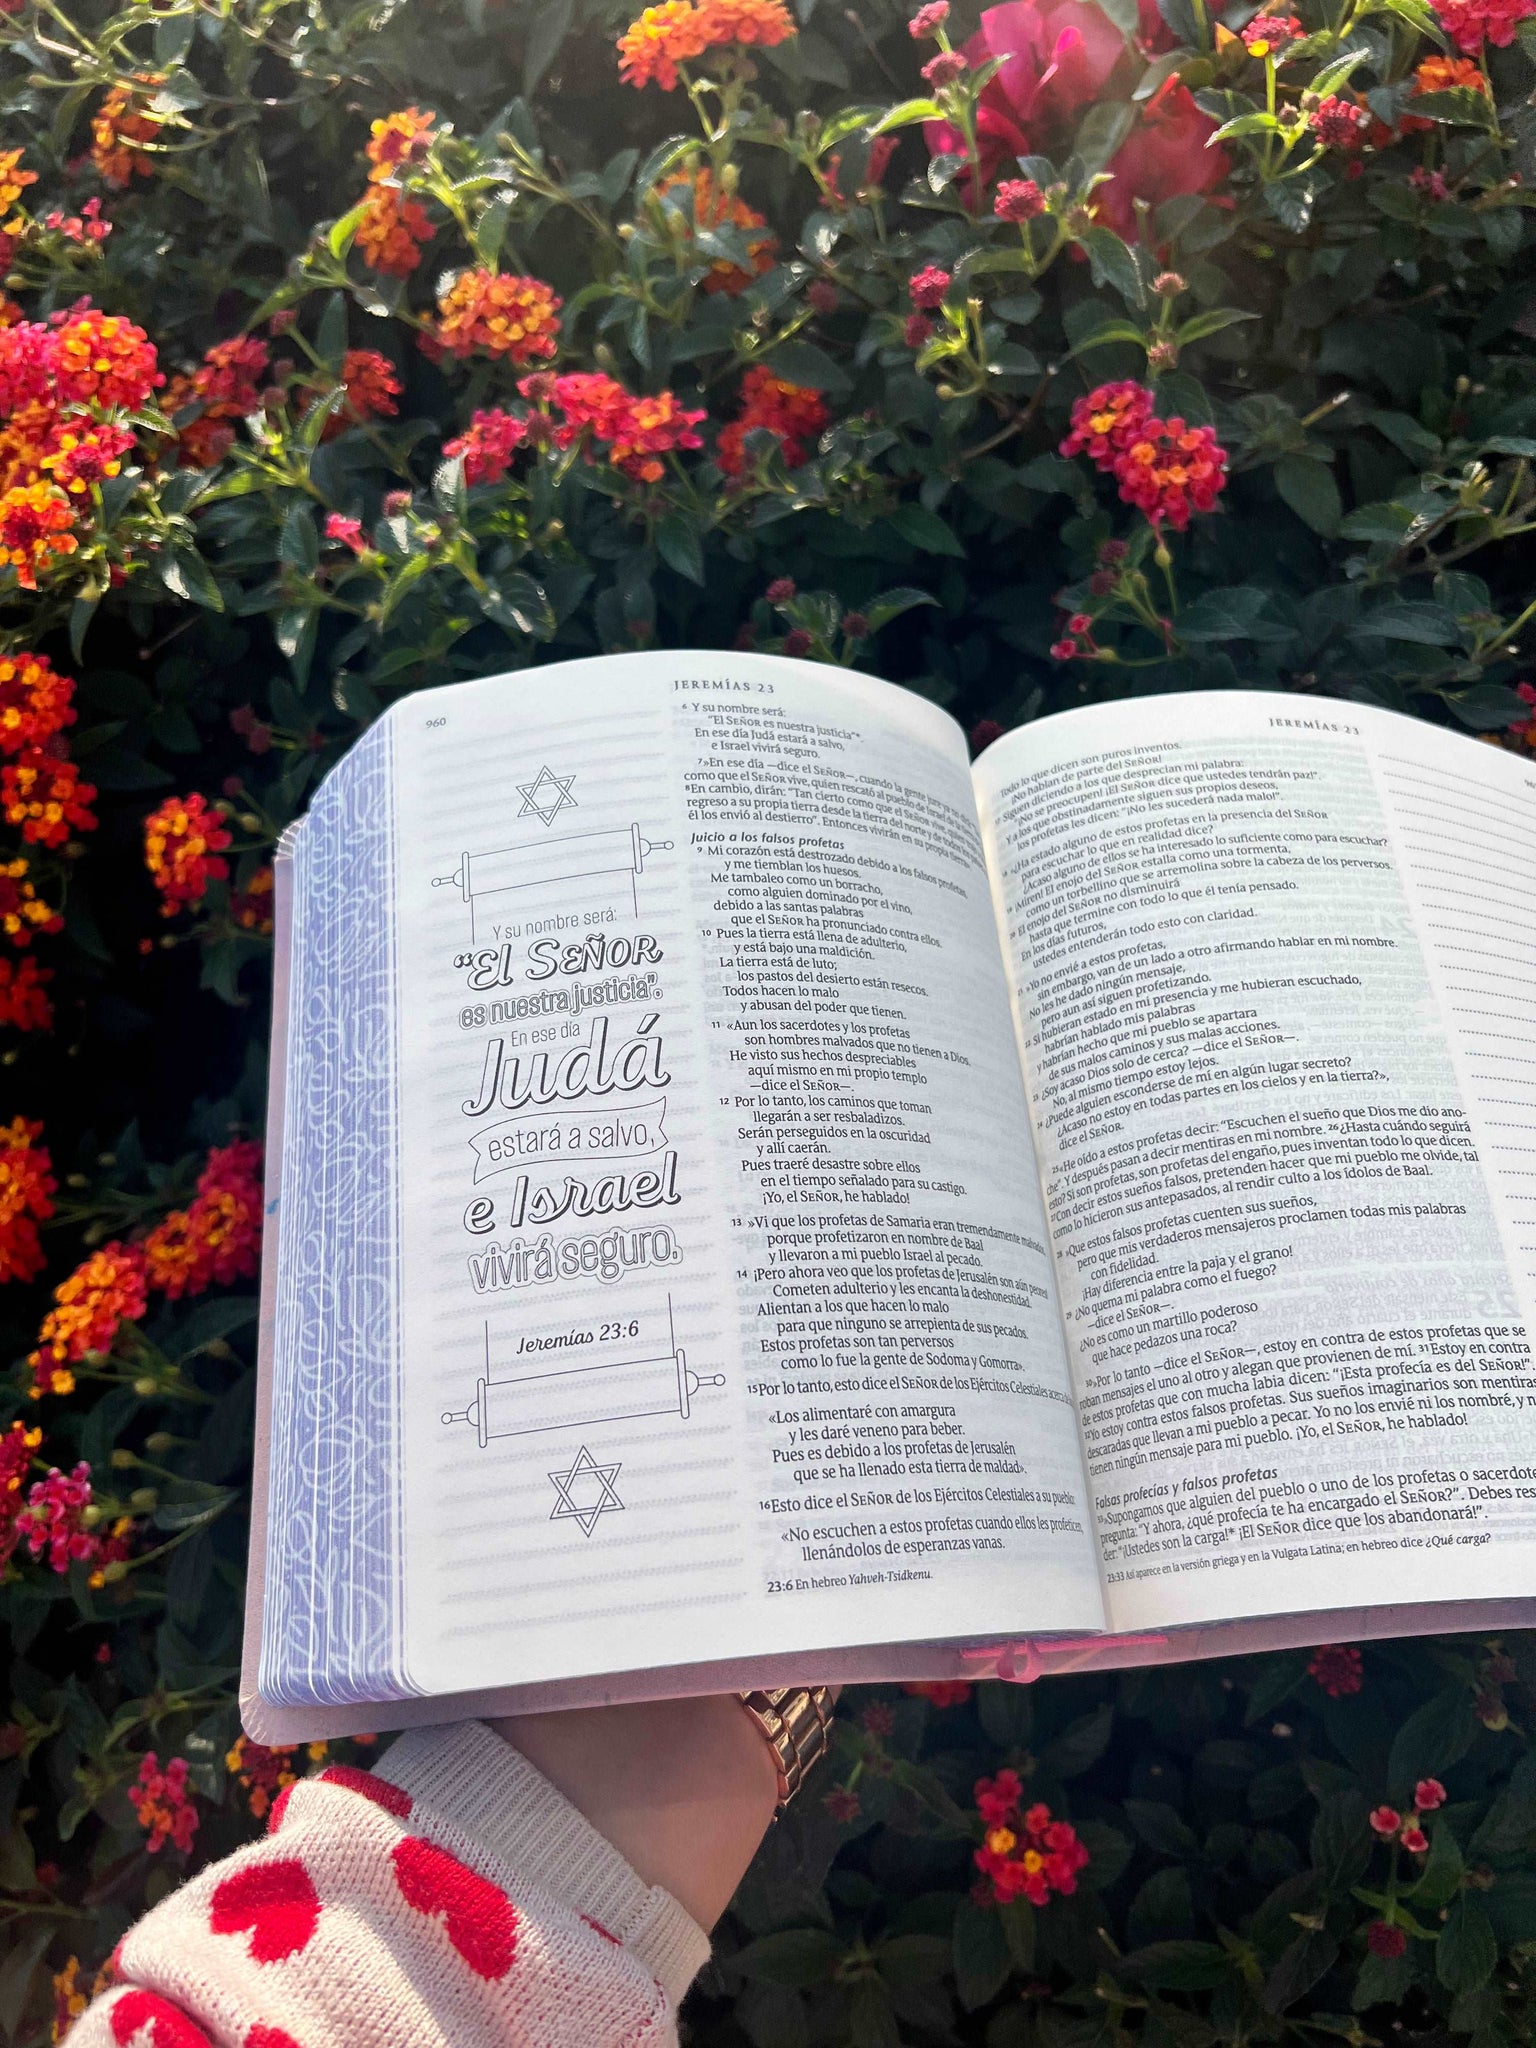 960
JEREMÍAS 23
Y su nombre será:
“El SEÑOR
es nuestra justicia”.
En ese día
Judá
estará a salvo,
e Israel
vivirá seguro.
Jeremías 23:6
6 Y su nombre será:
“El SEÑOR es nuestra justicia”*.
En ese día Judá estará a salvo,
e Israel vivirá seguro.
7 »En ese día —dice el SEÑOR—, cuando la gente jure ya no dirá:
como que el SEÑOR vive, quien rescató al pueblo de Israel de la
8 En cambio, dirán: “Tan cierto como que el SEÑOR vive, que
regreso a su propia tierra desde la tierra del norte y de todos los
él los envió al destierro”. Entonces vivirán en su propia tierra
Juicio a los falsos profetas
9 Mi corazón está destrozado debido a los falsos profetas,
y me tiemblan los huesos.
Me tambaleo como un borracho,
como alguien dominado por el vino,
debido a las santas palabras
que el SEÑOR ha pronunciado contra ellos.
10 Pues la tierra está llena de adulterio,
y está bajo una maldición.
La tierra está de luto;
los pastos del desierto están resecos.
Todos hacen lo malo
y abusan del poder que tienen.
11 «Aun los sacerdotes y los profetas
son hombres malvados que no tienen a Dios.
He visto sus hechos despreciables
aquí mismo en mi propio templo
—dice el SEÑOR—.
12 Por lo tanto, los caminos que toman
llegarán a ser resbaladizos.
Serán perseguidos en la oscuridad
y allí caerán.
Pues traeré desastre sobre ellos
en el tiempo señalado para su castigo.
¡Yo, el SEÑOR, he hablado!
13 »Vi que los profetas de Samaria eran tremendamente malvados,
porque profetizaron en nombre de Baal
y llevaron a mi pueblo Israel al pecado.
14 ¡Pero ahora veo que los profetas de Jerusalén son aún peores!
Cometen adulterio y les encanta la deshonestidad.
Alientan a los que hacen lo malo
para que ninguno se arrepienta de sus pecados.
Estos profetas son tan perversos
como lo fue la gente de Sodoma y Gomorra».
15 Por lo tanto, esto dice el SEÑOR de los Ejércitos Celestiales acerca de
«Los alimentaré con amargura
y les daré veneno para beber.
Pues es debido a los profetas de Jerusalén
que se ha llenado esta tierra de maldad».
16 Esto dice el SEÑOR de los Ejércitos Celestiales a su pueblo:
«No escuchen a estos profetas cuando ellos les profeticen,
llenándolos de esperanzas vanas.
23:6 En hebreo Yahveh-Tsidkenu.
JEREMÍAS 23
Todo lo que dicen son puros inventos.
¡No hablan de parte del SEÑOR!
17 Siguen diciendo a los que desprecian mi palabra:
“¡No se preocupen! ¡El SEÑOR dice que ustedes tendrán paz!”.
Y a los que obstinadamente siguen sus propios deseos,
los profetas les dicen: “¡No les sucederá nada malo!”.
18 »¿Ha estado alguno de estos profetas en la presencia del SEÑOR
para escuchar lo que en realidad dice?
¿Acaso alguno de ellos se ha interesado lo suficiente como para escuchar?
19 ¡Miren! El enojo del SEÑOR estalla como una tormenta,
como un torbellino que se arremolina sobre la cabeza de los perversos.
20 El enojo del SEÑOR no disminuirá
hasta que termine con todo lo que él tenía pensado.
En los días futuros,
ustedes entenderán todo esto con claridad.
21 »Yo no envié a estos profetas,
sin embargo, van de un lado a otro afirmando hablar en mi nombre.
No les he dado ningún mensaje,
pero aun así siguen profetizando.
22 Si hubieran estado en mi presencia y me hubieran escuchado,
habrían hablado mis palabras
y habrían hecho que mi pueblo se apartara
de sus malos caminos y sus malas acciones.
23 ¿Soy acaso Dios solo de cerca? —dice el SEÑOR—.
No, al mismo tiempo estoy lejos.
24 ¿Puede alguien esconderse de mí en algún lugar secreto?
¿Acaso no estoy en todas partes en los cielos y en la tierra?»,
dice el SEÑOR.
25 «He oído a estos profetas decir: “Escuchen el sueño que Dios me dio ano-
che”. Y después pasan a decir mentiras en mi nombre. 26 ¿Hasta cuándo seguirá
esto? Si son profetas, son profetas del engaño, pues inventan todo lo que dicen.
27 Con decir estos sueños falsos, pretenden hacer que mi pueblo me olvide, tal
como lo hicieron sus antepasados, al rendir culto a los ídolos de Baal.
28 »Que estos falsos profetas cuenten sus sueños,
pero que mis verdaderos mensajeros proclamen todas mis palabras
con fidelidad.
¡Hay diferencia entre la paja y el grano!
29 ¿No quema mi palabra como el fuego?
—dice el SEÑOR—.
¿No es como un martillo poderoso
que hace pedazos una roca?
30 »Por lo tanto —dice el SEÑOR—, estoy en contra de estos profetas que se
roban mensajes el uno al otro y alegan que provienen de mí. 31 Estoy en contra
de estos profetas que con mucha labia dicen: “¡Esta profecía es del SEÑOR!”.
32 Yo estoy contra estos falsos profetas. Sus sueños imaginarios son mentiras
descaradas que llevan a mi pueblo a pecar. Yo no los envié ni los nombré, y n
tienen ningún mensaje para mi pueblo. ¡Yo, el SEÑOR, he hablado!
Falsas profecías y falsos profetas
33 »Supongamos que alguien del pueblo o uno de los profetas o sacerdote
pregunta: “Y ahora, ¿qué profecía te ha encargado el SEÑOR?”. Debes res
der: “¡Ustedes son la carga!* ¡El SEÑOR dice que los abandonará!”.
23:33 Así aparece en la versión griega y en la Vulgata Latina; en hebreo dice ¿Qué carga?